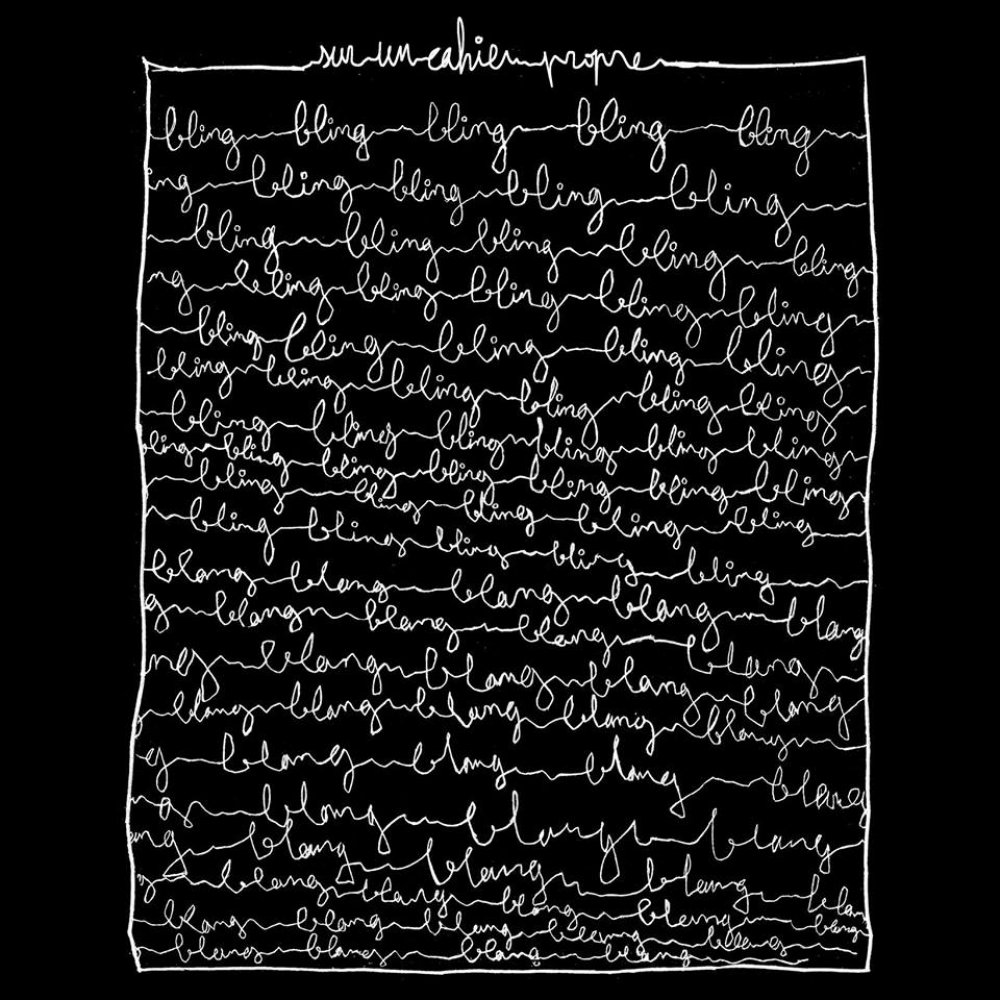 sur un cahier propre
bling bling bling bling bling
ing bling bling bling bling
bling bling bling bling bling
ng bling bling bling bling bling
bling bling bling bling bling
bling bling bling bling bling bling
bling bling bling bling bling bling
bling bling bling bling bling bling bling
bling bling bling bling bling
bling bling bling bling bling
blang blang blang blang blang
g blang blang blang blang
ng blang blang blang blang
blang blang blang blang blang
g blang blang blang blang
ng blang blang blang
ang blang blang blang blan
g blang blang blang
blang blang blang blang blang blang
blang blang blang blang